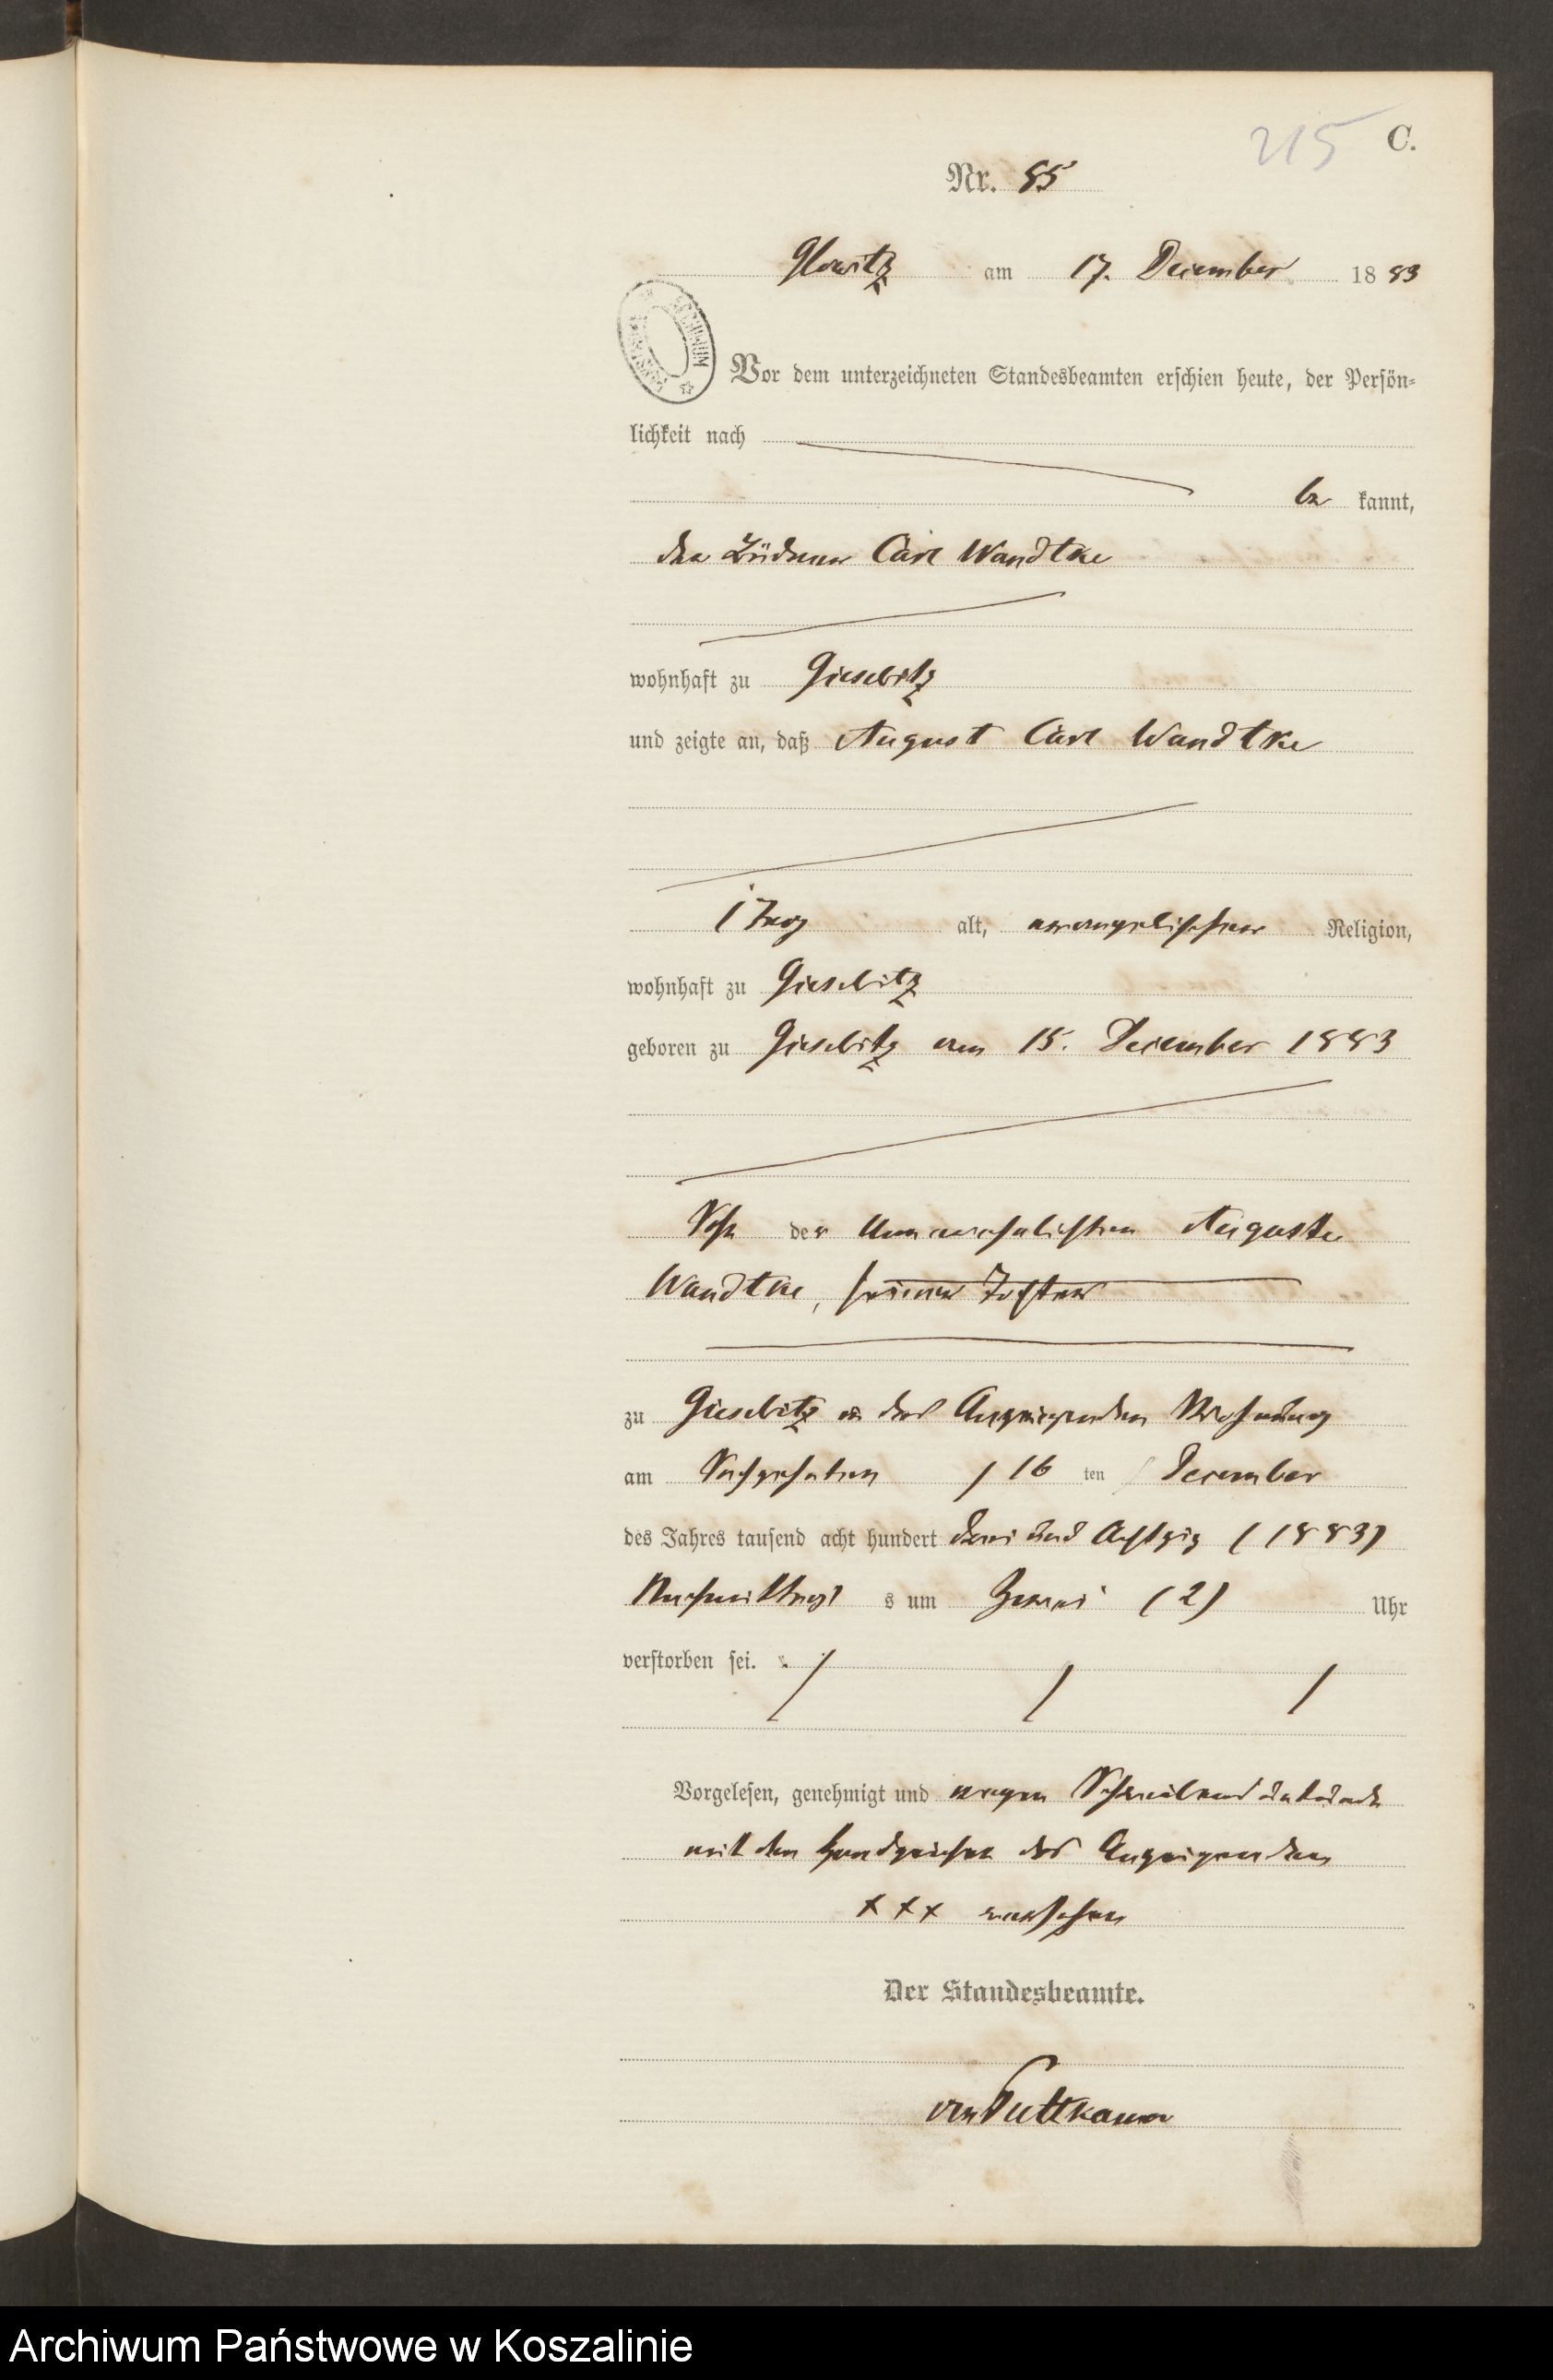 215 C.
Nr. 85
Glowitz am 17. December 1883
Vor dem unterzeichneten Standesbeamten erschien heute, der Persön-
lichkeit nach
be kannt,
der Büdner Carl Wandtke
wohnhaft zu Giesebitz
und zeigte an, daß August Carl Wandtke
1 Tag alt, evangelischer Religion,
wohnhaft zu Giesebitz
geboren zu Giesebitz am 15. December 1883
Sohn der unverehelichten Auguste
Wandtke, seiner Tochter
zu Giesebitz in des Anzeigenden Wohnung
am 16 ten December
des Jahres tausend acht hundert drei und achtzig (1883)
Nachmittags um zwei (2) Uhr
verstorben sei.
Vorgelesen, genehmigt und wegen Schreibensunkunde
mit den Handzeichen des Anzeigenden
+++ versehen
Der Standesbeamte.
von Puttkamer
ARCHIWUM
Archiwum Państwowe w Koszalinie